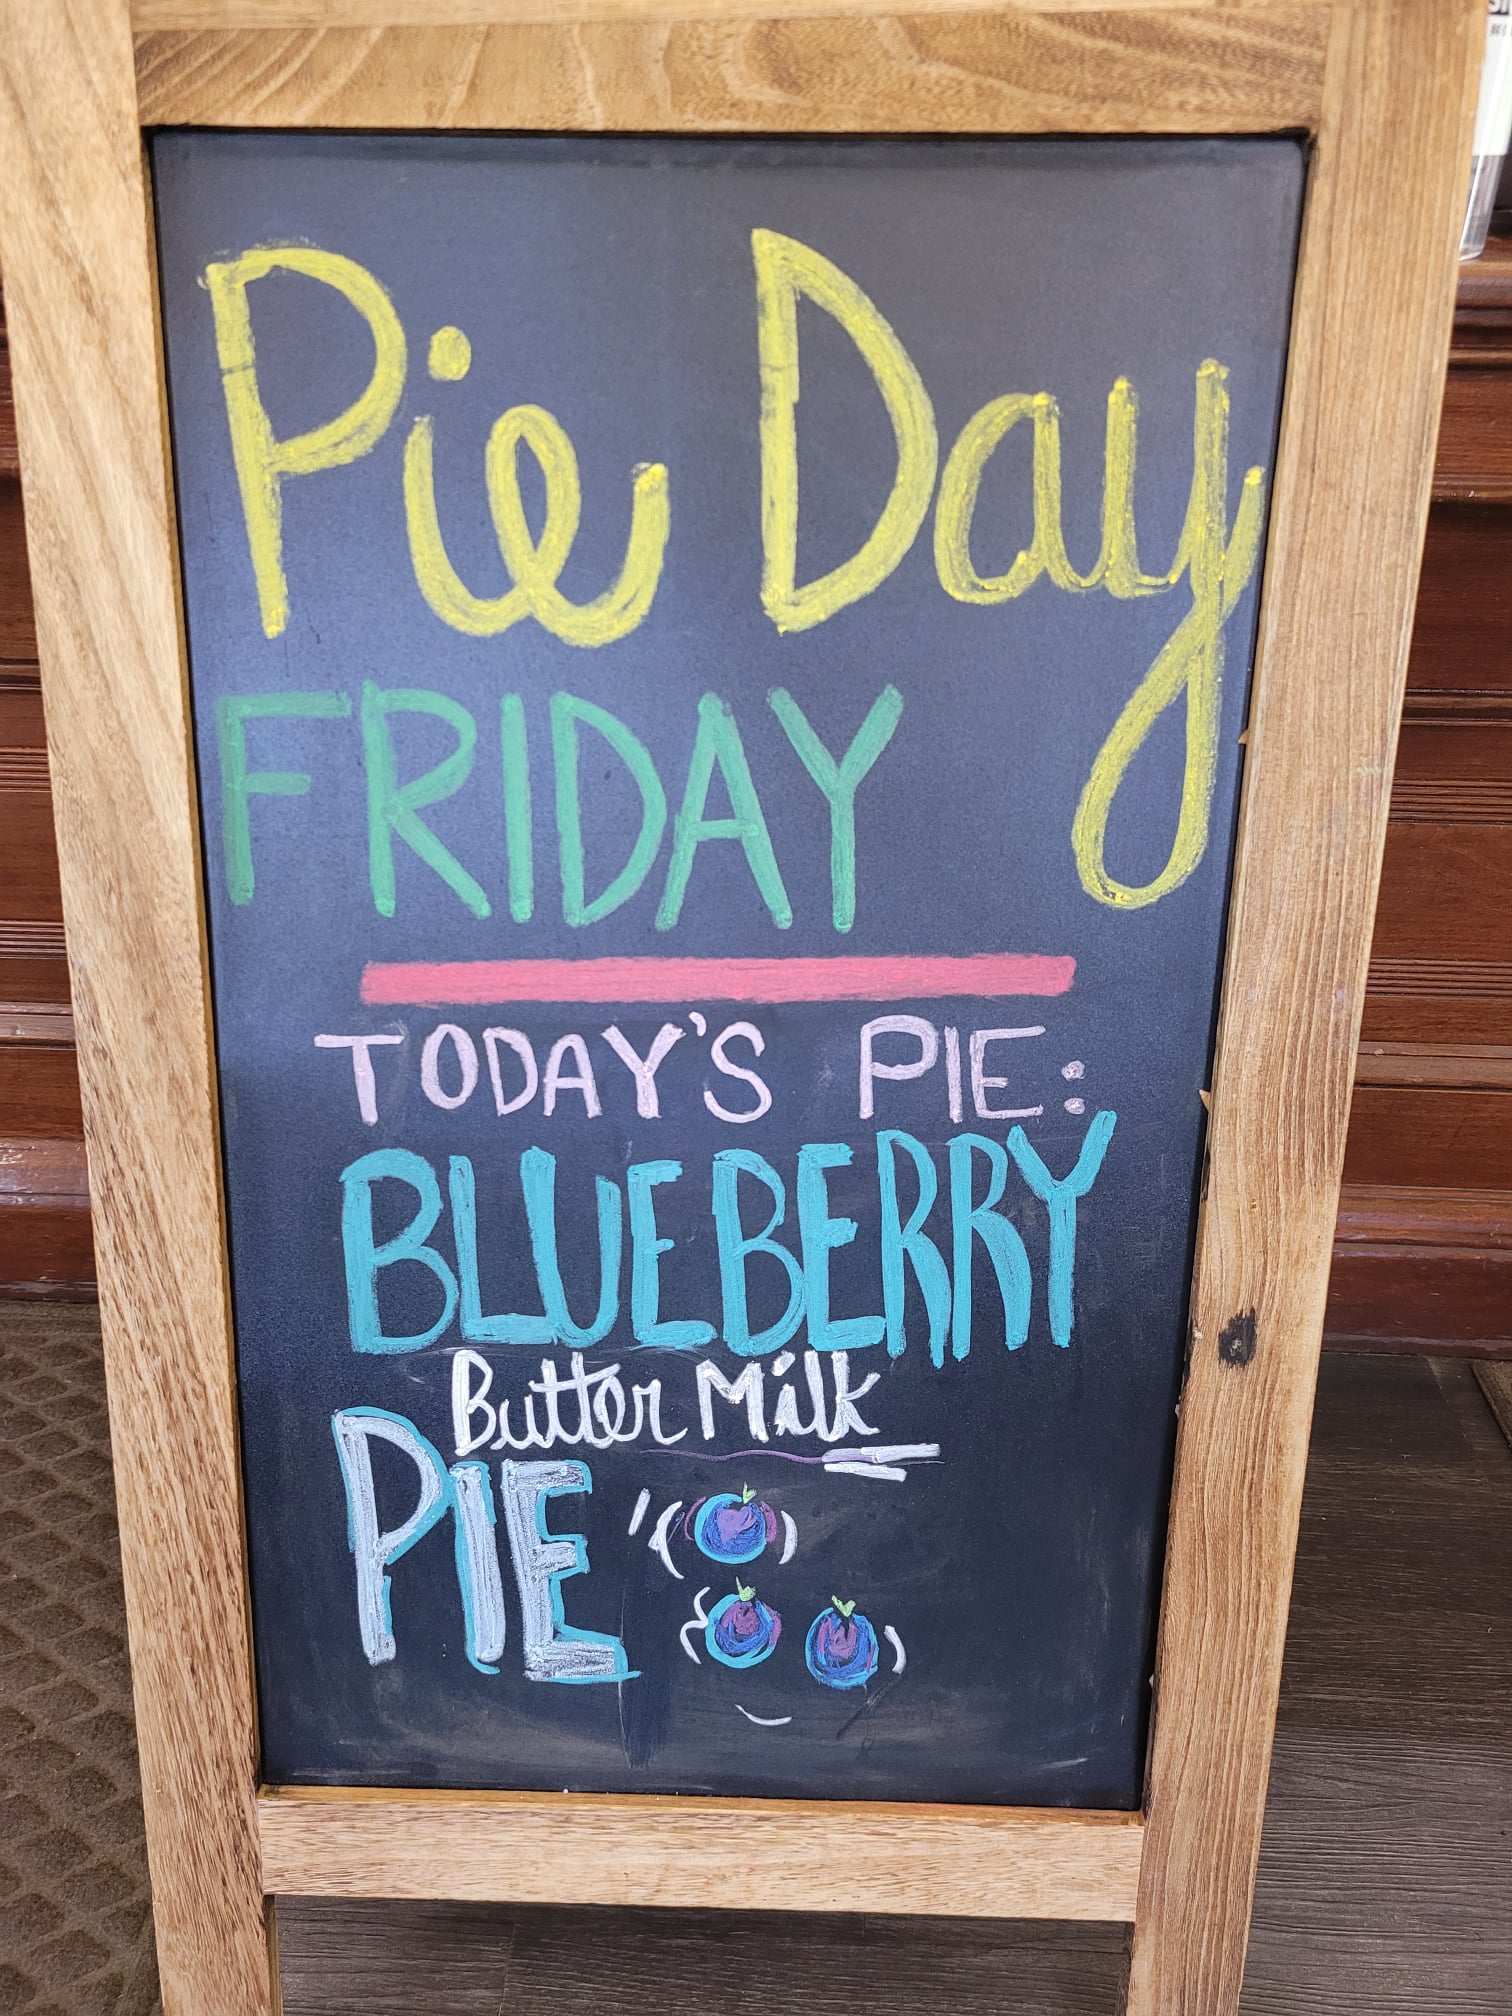 Pie Day
FRIDAY
TODAY'S PIE:
BLUEBERRY
Butter Milk
PIE